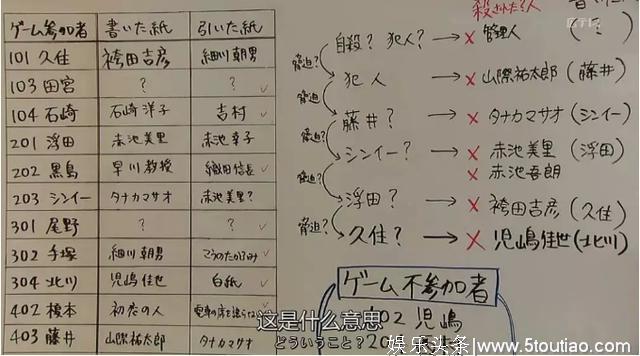 ゲーム参加者 書いた紙 引いた紙
101 久住 袴田吉彦 細川朝男
103 田宮 ? ?
104 石崎 石崎洋子 吉村
201 浮田 赤池美里 赤池幸子
202 黒島 早川教授 織田信長
203 シンイー タナカマサオ 赤池美里?
301 尾野 ? ?
302 手塚 細川朝男 こうのたかふみ
304 北川 児嶋佳世 白紙
402 榎本 初恋の人
403 藤井 山際祐太郎 タナカマサオ
殺された人
自殺?犯人? → × 管理人
脅迫?
犯人 → × 山際祐太郎(藤井)
脅迫?
藤井? → × タナカマサオ(シンイー)
脅迫?
シンイー? → × 赤池美里(浮田)
× 赤池吾朗
脅迫?
浮田? → × 袴田吉彦(久住)
脅迫?
久住? → × 児嶋佳世(北川)
ゲーム不参加者
児嶋
这是什么意思
どういうこと?
娱乐头条/www.5toutiao.com